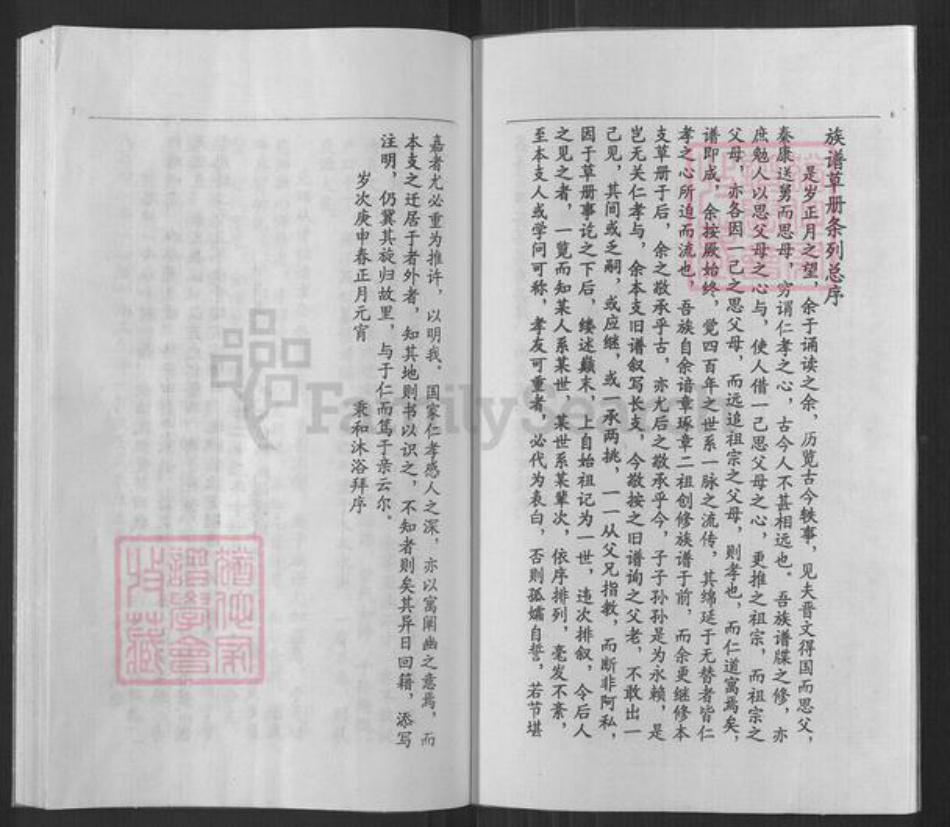 族谱草册条列总序
是岁正月之望，余于诵读之余，历览古今轶事，见夫晋文得国而思父，
秦康送舅而思母，穷谓仁孝之心，古今人不甚相远也。吾族谱牒之修，亦
庶勉人以思父母之心与，使人借一己思父母之心，更推之祖宗，而祖宗之
父母，亦各因一己之思父母，而远追祖宗之父母，则孝也，而仁道寓焉矣，
谱即成，余按厥始终，觉四百年之世系一脉之流传，其绵延于无替者皆仁
孝之心所迫而流也，吾族自余谙章琢章二祖创修族谱于前，而余更继修本
支草册于后，余之敬承乎古，亦尤后之敬承乎今，子子孙孙是为永赖，是
岂无关仁孝与，余本支旧谱叙写长支，今敬按之旧谱询之父老，不敢出一
己见，其间或乏嗣，或应继，或一承两挑，一一从父兄指教，而断非阿私，
因于草册事讫之下后，缕述巅末，上自始祖记为一世，违次排叙，令后人
之见之者，一览而知某人系某世，某世系某辈次，依序排列，毫发不紊，
至本支人或学问可称，孝友可重者，必代为表白，否则孤孀自誓，若节堪
嘉者尤必重为推许，以明我。国家仁孝感人之深，亦以寓阐幽之意焉，而
本支之迁居于者外者，知其地则书以识之，不知者则矣其异日回籍，添写
注明，仍冀其旋归故里，与于仁而笃于亲云尔。
岁次庚申春正月元宵 秉和沐浴拜序
6
7
FamilySearch